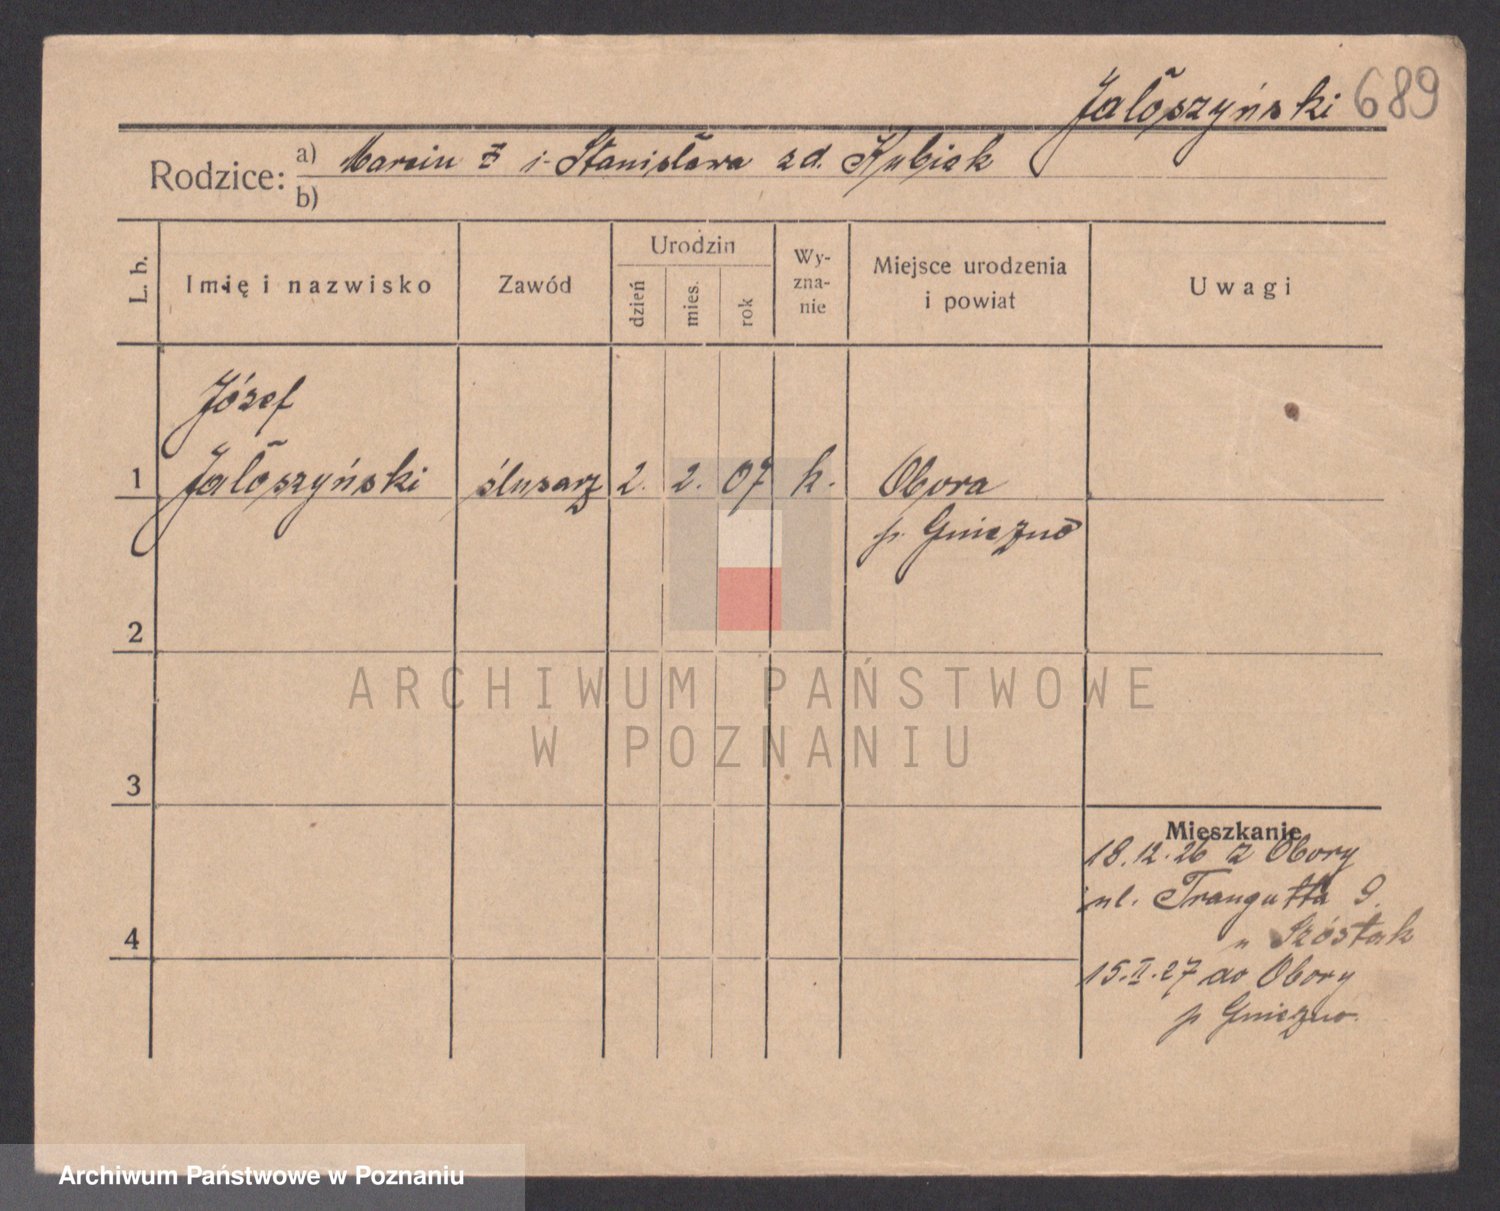 Jałoszyński 689
Rodzice: a) Marcin i Stanisława z d. Kubiak
b)
L. b. Imię i nazwisko Zawód Urodzin dzień mies. rok Wy-zna-nie Miejsce urodzenia i powiat Uwagi
Józef
1 Jałoszyński ślusarz 2. 2. 07 k. Obora
p. Gniezno
2
ARCHIWUM PAŃSTWOWE
W POZNANIU
3
Mieszkanie
18.12.26 z Obory
ul. Traugutta 9.
4
" Szóstak
15.II.27 do Obory
p Gniezno.
Archiwum Państwowe w Poznaniu